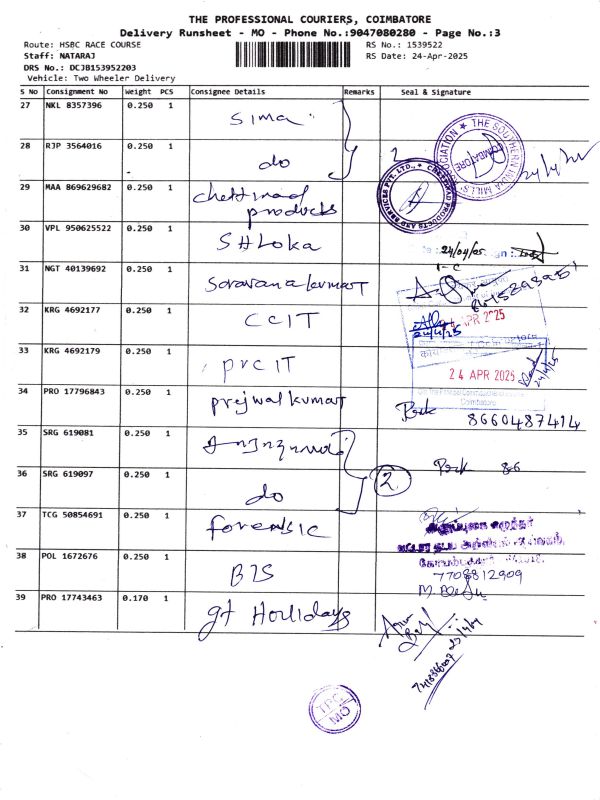 THE PROFESSIONAL COURIERS, COIMBATORE
Delivery Runsheet - MO - Phone No.:9047080280 - Page No.:3
Route: HSBC RACE COURSE
RS No.: 1539522
Staff: NATARAJ
RS Date: 24-Apr-2025
DRS No.: DCJB153952203
Vehicle: Two Wheeler Delivery
S No Consignment No Weight PCS Consignee Details Remarks Seal & Signature
27 NKL 8357396 0.250 1 Sima
28 RJP 3564016 0.250 1 do
29 MAA 869629682 0.250 1 chettinad products
30 VPL 950625522 0.250 1 SHLOKA 24/04/25
31 NGT 40139692 0.250 1 Saravana kumar
32 KRG 4692177 0.250 1 CCIT APR 2025
24/4/25
33 KRG 4692179 0.250 1 PrCIT 24 APR 2025
Coimbatore
34 PRO 17796843 0.250 1 prejwal kumar 8660487414
35 SRG 619081 0.250 1
36 SRG 619097 0.250 1 do 2. 86
37 TCG 50854691 0.250 1 forensic
38 POL 1672676 0.250 1 BIS 7708812909
39 PRO 17743463 0.170 1 gt Hollidays
THE SOUTHERN INDIA MILLS' ASSOCIATION
COIMBATORE
CHETTINAD PRODUCTS AND SERVICES PVT. LTD.,
TPC
MO